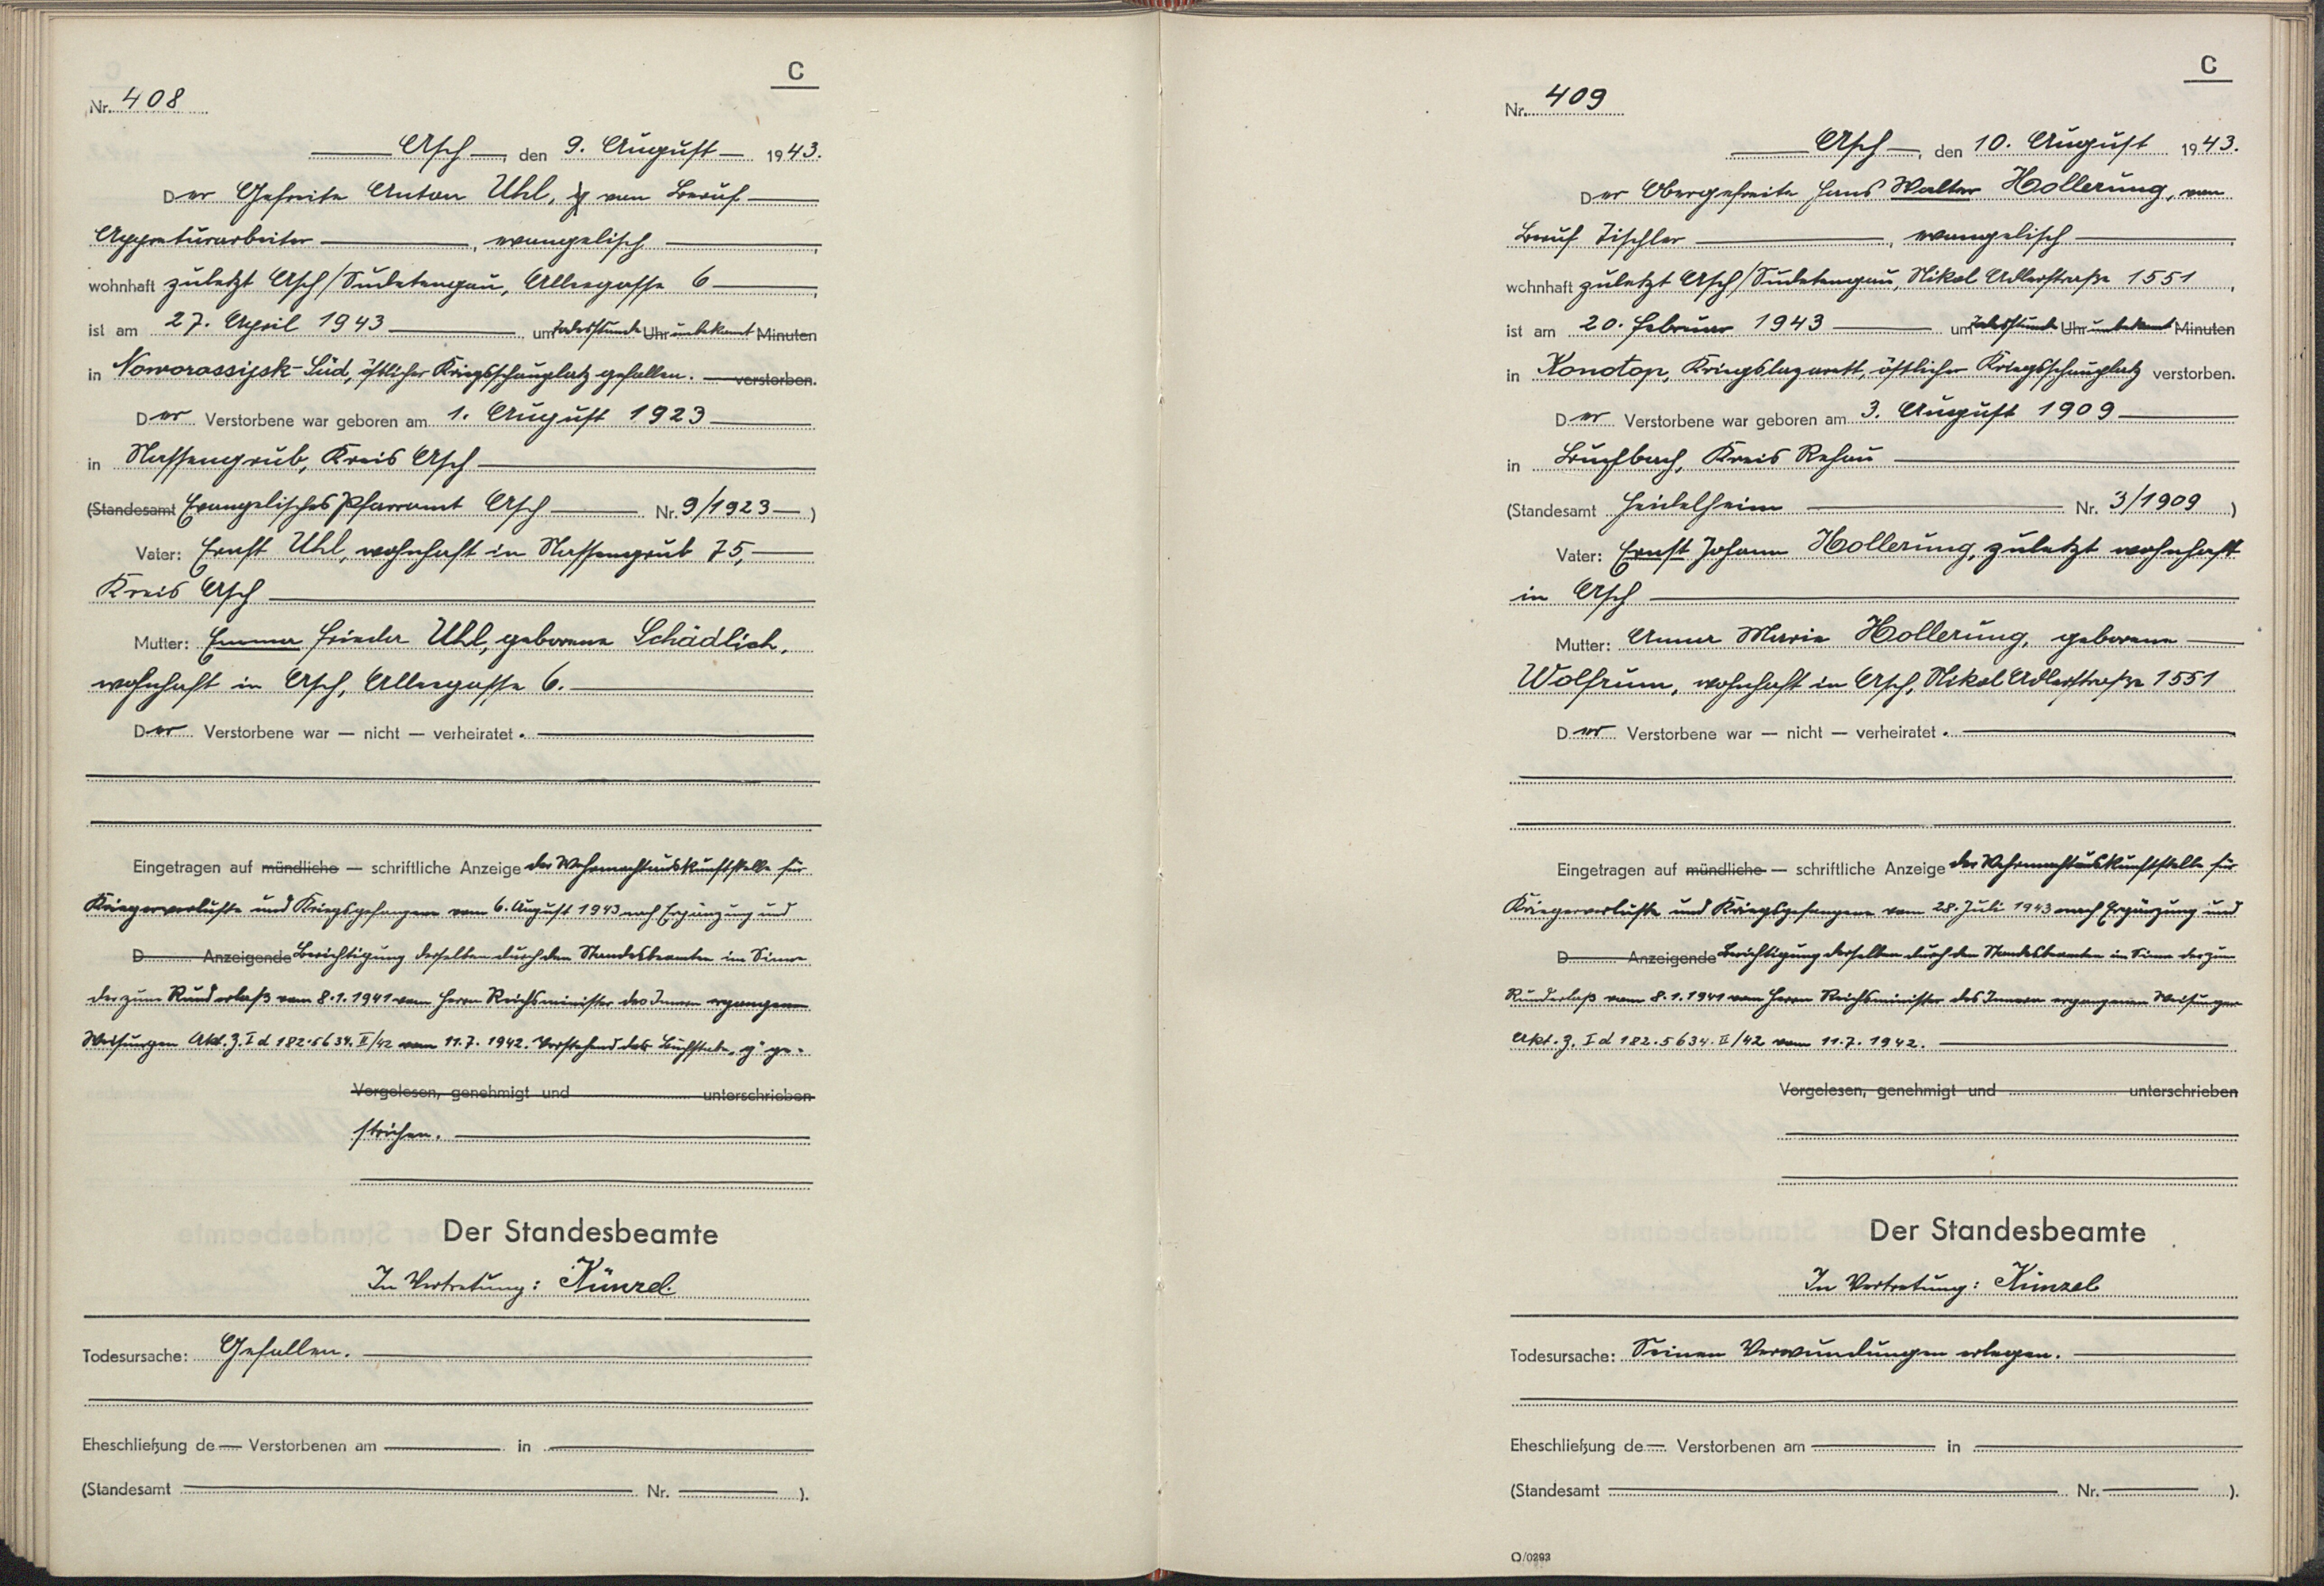 C
Nr. 408
Asch, den 9. August 1943.
Der Gefreite Anton Uhl, g von Beruf
Appreturarbeiter, evangelisch,
wohnhaft zuletzt Asch/Sudetengau, Alleegasse 6,
ist am 27. April 1943, um Todesstunde Uhr unbekannt Minuten
in Noworossijsk-Süd, östlicher Kriegsschauplatz gefallen. verstorben.
Der Verstorbene war geboren am 1. August 1923
in Nassengrub, Kreis Asch
(Standesamt Evangelisches Pfarramt Asch Nr. 9/1923)
Vater: Ernst Uhl, wohnhaft in Nassengrub 75,
Kreis Asch
Mutter: Emma Frieda Uhl, geborene Schädlich,
wohnhaft in Asch, Alleegasse 6.
Der Verstorbene war — nicht — verheiratet.
Eingetragen auf mündliche — schriftliche Anzeige der Wehrmachtauskunftstelle für
Kriegerverluste und Kriegsgefangene vom 6. August 1943 nach Ergänzung und
D Anzeigende Berichtigung derselben durch den Standesbeamten im Sinne
der zum Runderlaß vom 8.1.1941 vom Herrn Reichsminister des Innern ergangenen
Weisungen Akt. Z. I d 182.5634. II/42 vom 11.7.1942. Vorstehend der Buchstabe „g" ge-
Vorgelesen, genehmigt und unterschrieben
strichen.
Der Standesbeamte
In Vertretung: Künzel
Todesursache: Gefallen.
Eheschließung de Verstorbenen am in
(Standesamt Nr. ).
C
Nr. 409
Asch, den 10. August 1943.
Der Obergefreite Hans Walter Hollerung, von
Beruf Tischler, evangelisch
wohnhaft zuletzt Asch/Sudetengau, Nikol Adlerstraße 1551,
ist am 20. Februar 1943 um Todesstunde Uhr unbekannt Minuten
in Konotop, Kriegslazarett, östlicher Kriegsschauplatz verstorben.
Der Verstorbene war geboren am 3. August 1909
in Buchbach, Kreis Rehau
(Standesamt Heidelheim Nr. 3/1909)
Vater: Ernst Johann Hollerung, zuletzt wohnhaft
in Asch
Mutter: Anna Marie Hollerung, geborene
Wolfrum, wohnhaft in Asch, Nikol Adlerstraße 1551
Der Verstorbene war — nicht — verheiratet.
Eingetragen auf mündliche — schriftliche Anzeige der Wehrmachtauskunftstelle für
Kriegerverluste und Kriegsgefangene vom 28. Juli 1943 nach Ergänzung und
D Anzeigende Berichtigung derselben durch den Standesbeamten im Sinne der zum
Runderlaß vom 8.1.1941 vom Herrn Reichsminister des Innern ergangenen Weisungen
Akt. Z. I d 182.5634. II/42 vom 11.7.1942.
Vorgelesen, genehmigt und unterschrieben
Der Standesbeamte
In Vertretung: Künzel
Todesursache: Seinen Verwundungen erlegen.
Eheschließung de Verstorbenen am in
(Standesamt Nr. ).
O/0293